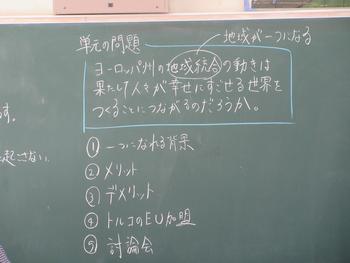 単元の問題
地域が一つになる
ヨーロッパ州の地域統合の動きは
果たして人々が幸せにすごせる世界を
つくることにつながるのだろうか。
① 一つになれる背景
② メリット
③ デメリット
④ トルコのEU加盟
⑤ 討論会
す。
起さない